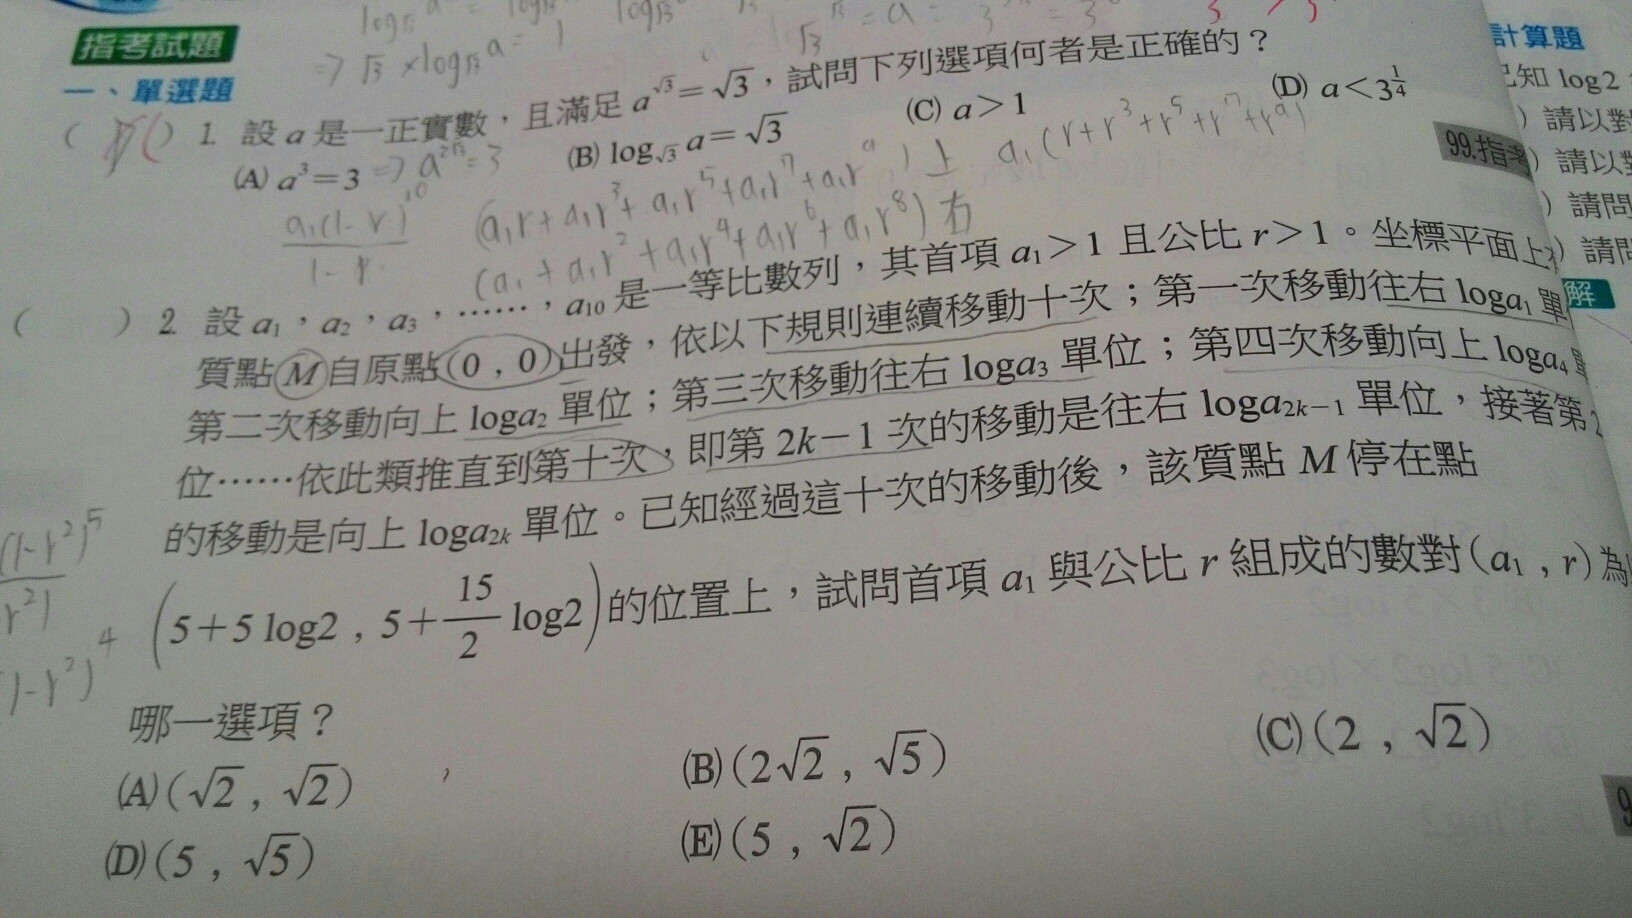 指考試題
一、單選題
⇒ √3 × log√3 a = 1
( ) 1. 設 a 是一正實數，且滿足 a^√3 = √3，試問下列選項何者是正確的？
(A) a³=3 ⇒ a^2√3 = 3 (B) log√3 a = √3 (C) a>1 (D) a<3^1/4
99.指考
a₁(1-r)^10 / 1-r
(a₁r+a₁r³+a₁r⁵+a₁r⁷+a₁r⁹) 上 a₁(r+r³+r⁵+r⁷+r⁹)
(a₁+a₁r²+a₁r⁴+a₁r⁶+a₁r⁸) 右
( ) 2. 設 a₁，a₂，a₃，……，a₁₀ 是一等比數列，其首項 a₁>1 且公比 r>1。坐標平面上
質點 M 自原點(0，0)出發，依以下規則連續移動十次；第一次移動往右 loga₁ 單
第二次移動向上 loga₂ 單位；第三次移動往右 loga₃ 單位；第四次移動向上 loga₄
位……依此類推直到第十次，即第 2k−1 次的移動是往右 loga₂ₖ₋₁ 單位，接著第 2
的移動是向上 loga₂ₖ 單位。已知經過這十次的移動後，該質點 M 停在點
(5+5 log2，5+15/2 log2)的位置上，試問首項 a₁ 與公比 r 組成的數對(a₁，r)為
哪一選項？
(A)(√2，√2) (B)(2√2，√5) (C)(2，√2)
(D)(5，√5) (E)(5，√2)
(1-r²)⁵
r²)
1-r²)⁴
計算題
已知 log2
)請以對
)請以對
)請問
)請問
解